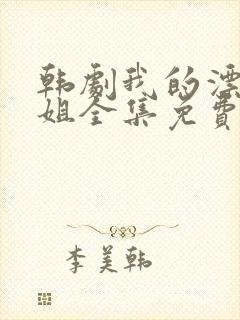 韩劇我的漂
姐全集免費
李美韩